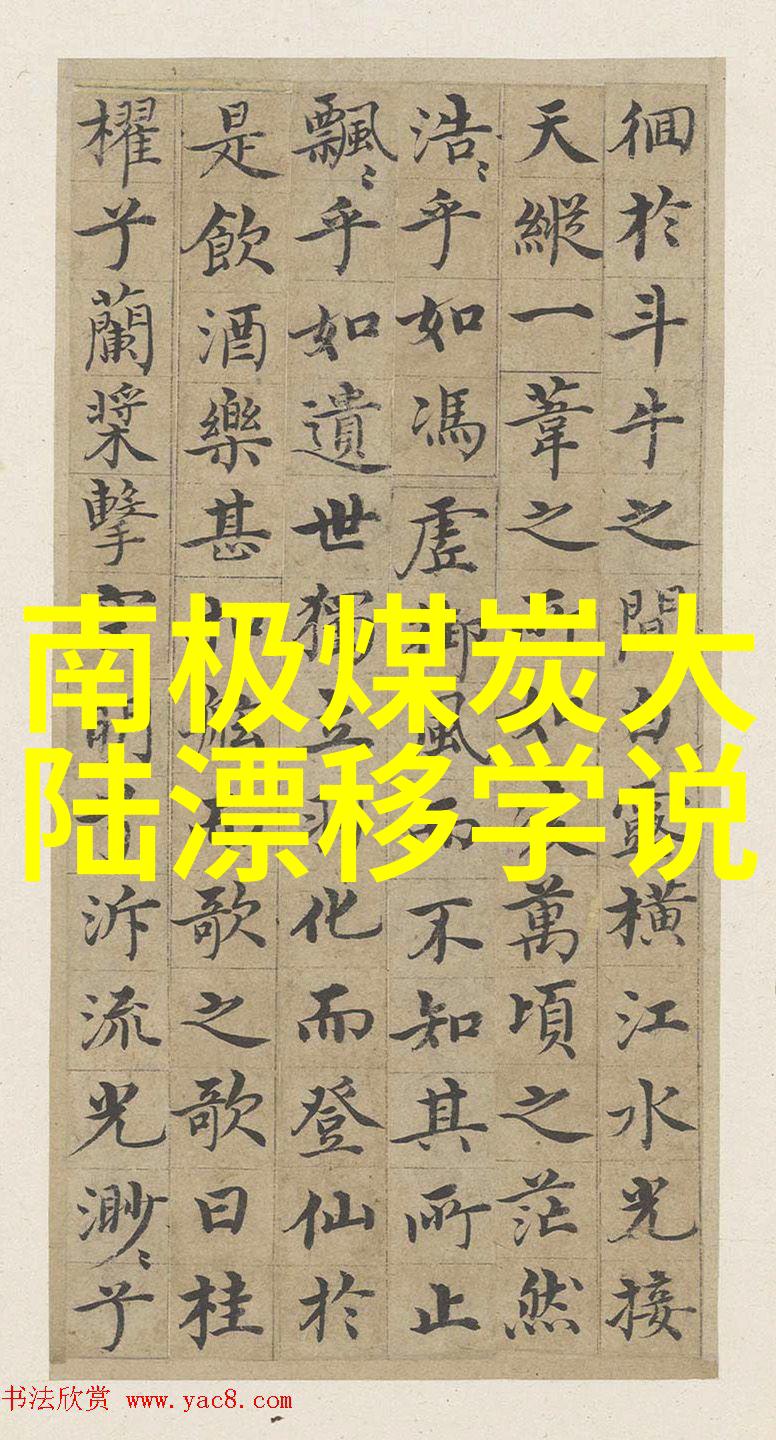 徊於斗牛之間白露橫江水光接
天縱一葦之所如凌萬頃之茫然
浩〻乎如馮虛御風而不知其所止
飄〻乎如遺世獨立羽化而登仙於
是飲酒樂甚扣舷而歌之歌曰桂
櫂兮蘭槳擊空明兮泝流光渺〻兮
南极煤炭大
陆漂移学说
书法欣赏 www.yac8.com